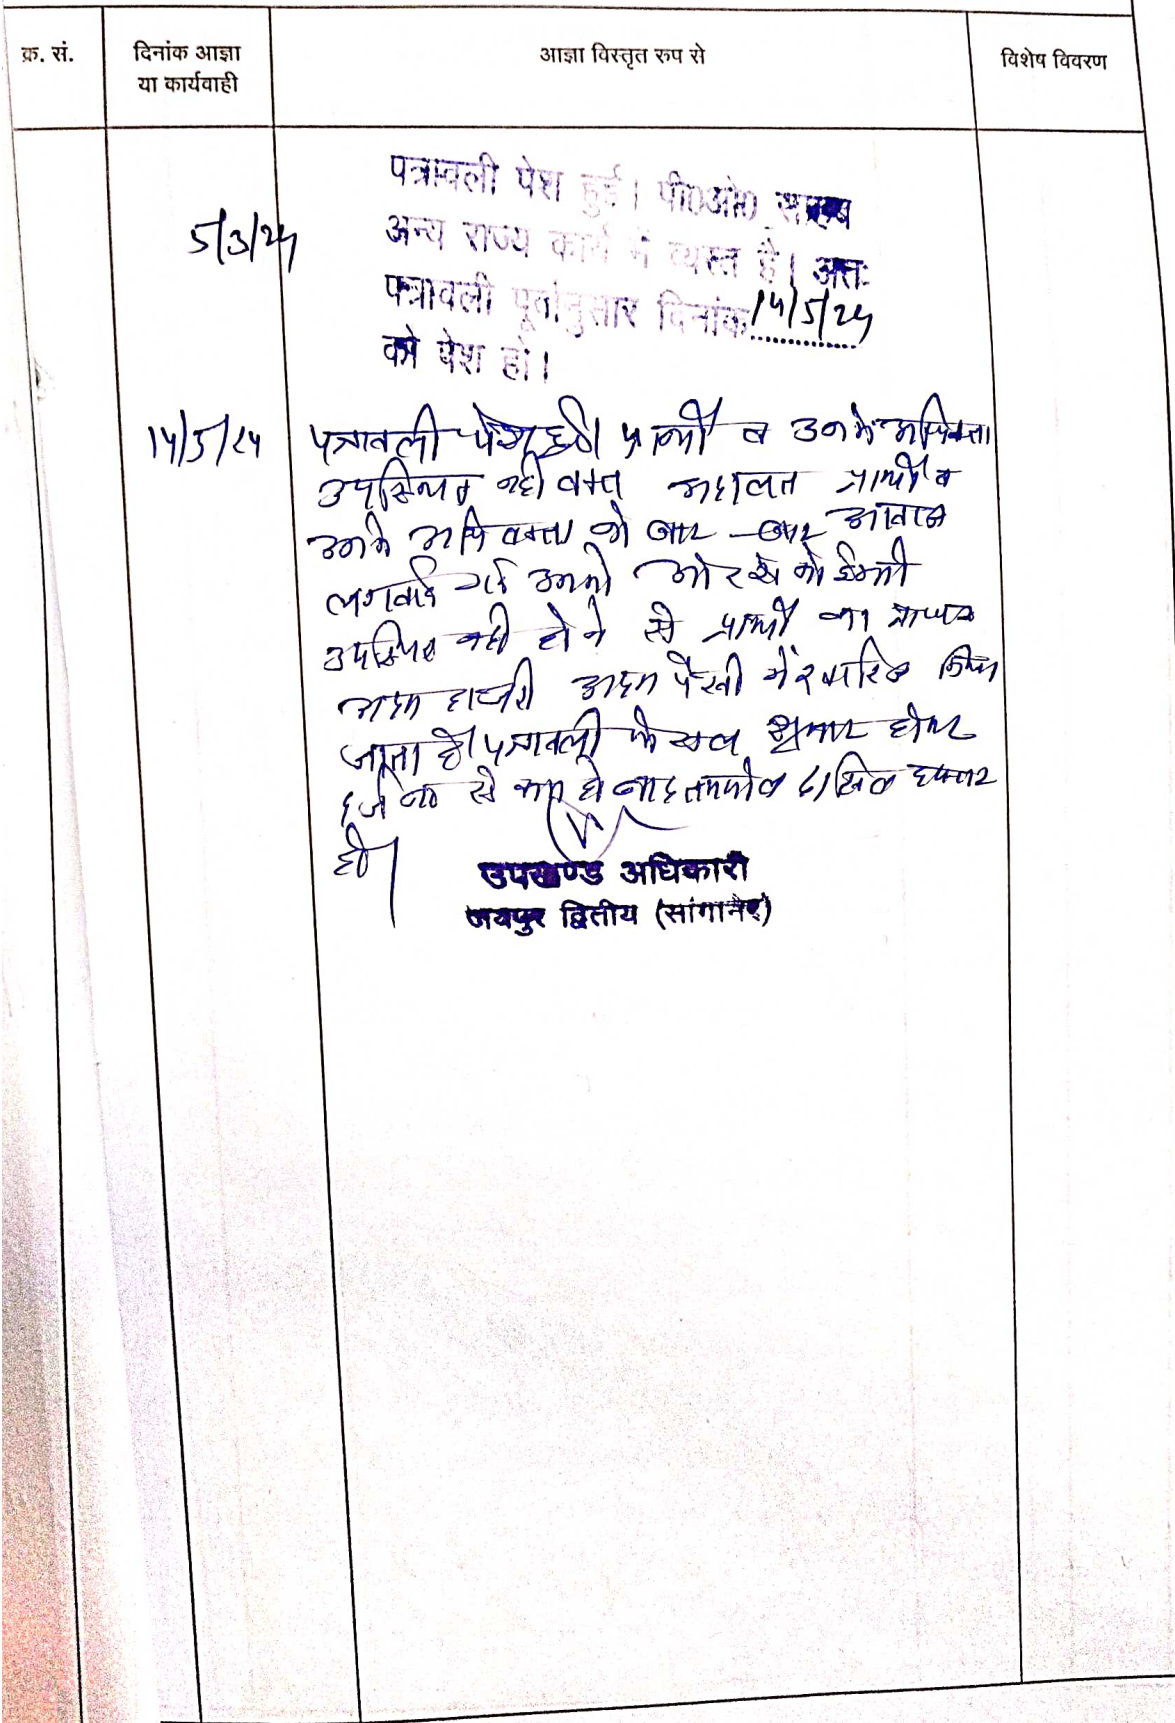 क्र. सं.
दिनांक आज्ञा
या कार्यवाही
आज्ञा विस्तृत रुप से
विशेष विवरण
पत्रावली पेश हुई। पी0ओ0 साहब
5/3/24
अन्य राज्य कार्य में व्यस्त है। अतः
पत्रावली पूर्वानुसार दिनांक 14/5/24
को पेश हो।
14/5/24
पत्रावली पेश हुई। प्रार्थी व उनके अधिवक्ता
उपस्थित नही वक्त अदालत प्रार्थी व
उनके अधिवक्ता को बार-बार आवाज
लगवाई गई उनकी ओर से कोई भी
उपस्थित नही होने से प्रार्थी का प्रा०पत्र
अदम हाजरी अदम पैरवी में खारिज किया
जाता है। पत्रावली फैसल शुमार होकर
दर्ज नं० से कम हो बाद तकमील दाखिल दफ्तर
हो।
उपखण्ड अधिकारी
जयपुर द्वितीय (सांगानेर)